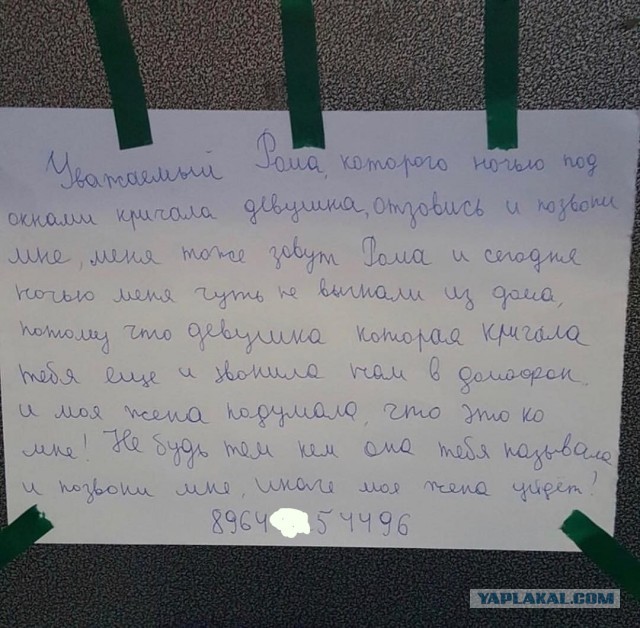 Уважаемый Рома, которого ночью под
окнами кричала девушка, отзовись и позвони
мне, меня тоже зовут Рома и сегодня
ночью меня чуть не выгнали из дома,
потому что девушка которая кричала
тебя еще и звонила нам в домофон
и моя жена подумала, что это ко
мне! Не будь тем кем она тебя называла
и позвони мне, иначе моя жена уйдёт!
8964 54496
YAPLAKAL.COM